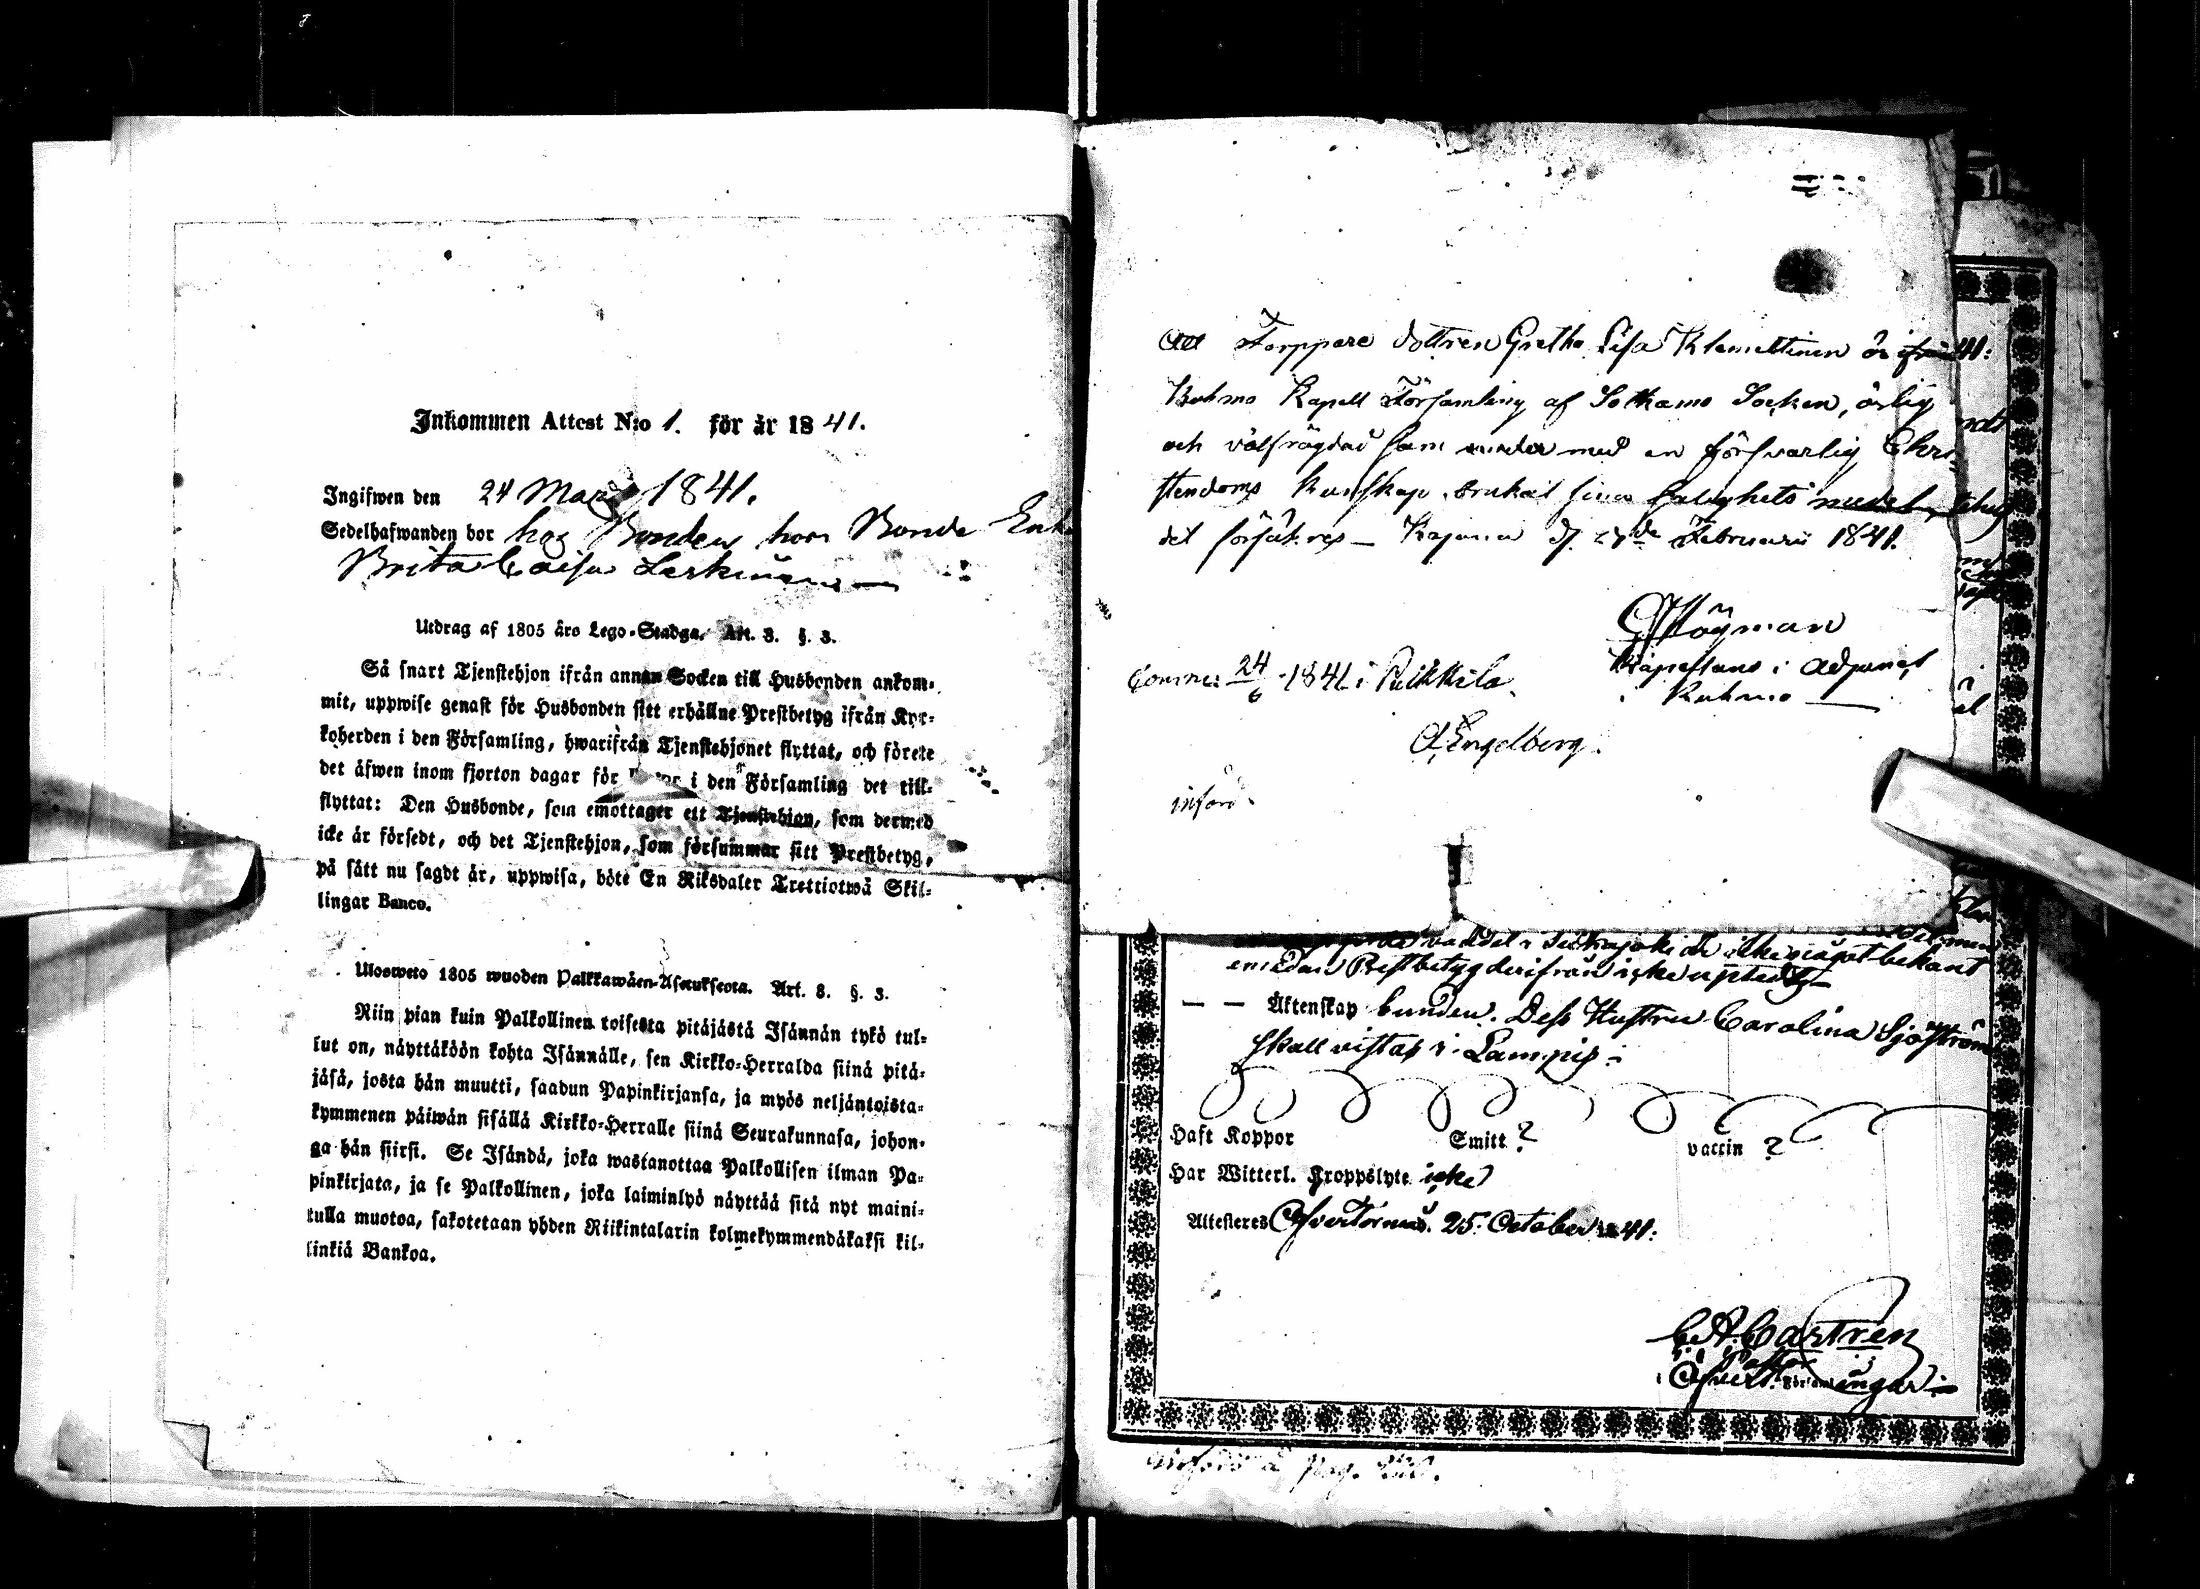 Inkommen Attest N:o 1. för år 1841.
Ingifwen den 24 Mars 1841.
Sedelhafwanden bor hos Bonden hos Bonde Enk
Brita Caisa Leskinen
Utdrag af 1805 års Lego-Stadga. Art. 3. §. 3.
Så snart Tjenstehjon ifrån annan Socken till Husbonden ankom-
mit, uppwise genast för Husbonden sitt erhållne Prestbetyg ifrån Kyr-
koherden i den Församling, hwarifrån Tjenstehjonet flyttat, och förete
det äfwen inom fjorton dagar för i den Församling det till-
flyttat: Den Husbonde, som emottager ett Tjenstehjon, som dermed
icke är försedt, och det Tjenstehjon, som försummar sitt Prestbetyg,
på sätt nu sagdt är, uppwisa, böte En Riksdaler Trettiotwå Skil-
lingar Banco.
Ulosweto 1805 wuoden Palkkawäen-Asetuksesta. Art. 8. §. 3.
Niin pian kuin Palkollinen toisesta pitäjästä Isännän tykö tul-
lut on, näyttäköön kohta Isännälle, sen Kirkko-Herralda siinä pitä-
jäsä, josta hän muutti, saadun Papinkirjansa, ja myös neljäntoista-
kymmenen päiwän sisällä Kirkko-Herralle siinä Seurakunnasa, johon-
ga hän siirsi. Se Isändä, joka wastanottaa Palkollisen ilman Pa-
pinkirjata, ja se Palkollinen, joka laiminlyö näyttää sitä nyt maini-
tulla muotoa, sakotetaan yhden Riikintalarin kolmekymmendäkaksi kil-
linkiä Bankoa.
Att Torppare dottren Gretha Lisa Klemettinen är ifrån
Kuhmo Kapell Församling af Sotkamo Socken, ärlig
och välfrägdad samt med en försvarlig Chri-
stendoms Kunskap brukat sina salighets medel,
det försäkras _ Kajana d. 27de Februarii 1841.
Högman
Kapellans i Adjunct
i Kuhmo
24/6 1841 i Pulkkila.
Engelberg.
införd.
vaddel i icke något bekant
emedan Prestbetyg derifrån icke uptedt
— — Äktenskap bunden. Dess Hustru Carolina Sjöström
skall vistas i Lampis
Haft Koppor Smitt ? vaccin ?
Har Witterl. Kroppslyte icke
Attesteras Öfvertorneå. 25. October 1841.
C. A. Castren